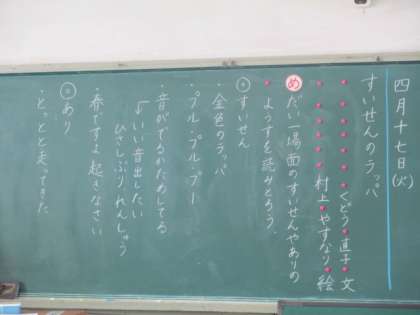 四月十七日(火)
すいせんのラッパ
くどう直子 文
村上やすなり 絵
め だい一場面のすいせんやありの
ようすを読みとろう。
すいせん
・金色のラッパ
・プル・プル・プー
・音がでるかためしてる
↓いい音出したい
ひさしぶり れんしゅう
・春ですよ 起きなさい
あり
・とっとと走ってきた